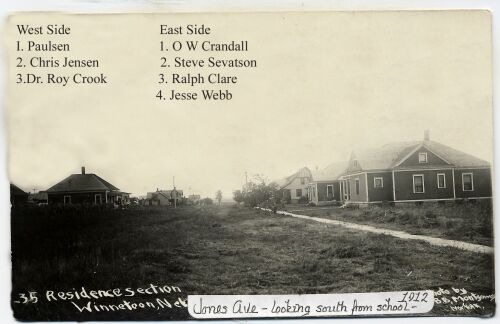 West Side
I. Paulsen
2. Chris Jensen
3.Dr. Roy Crook
East Side
1. O W Crandall
2. Steve Sevatson
3. Ralph Clare
4. Jesse Webb
35 Residence section
Winnetoon, Neb
Jones Ave - Looking south from school -
1912
Photo by